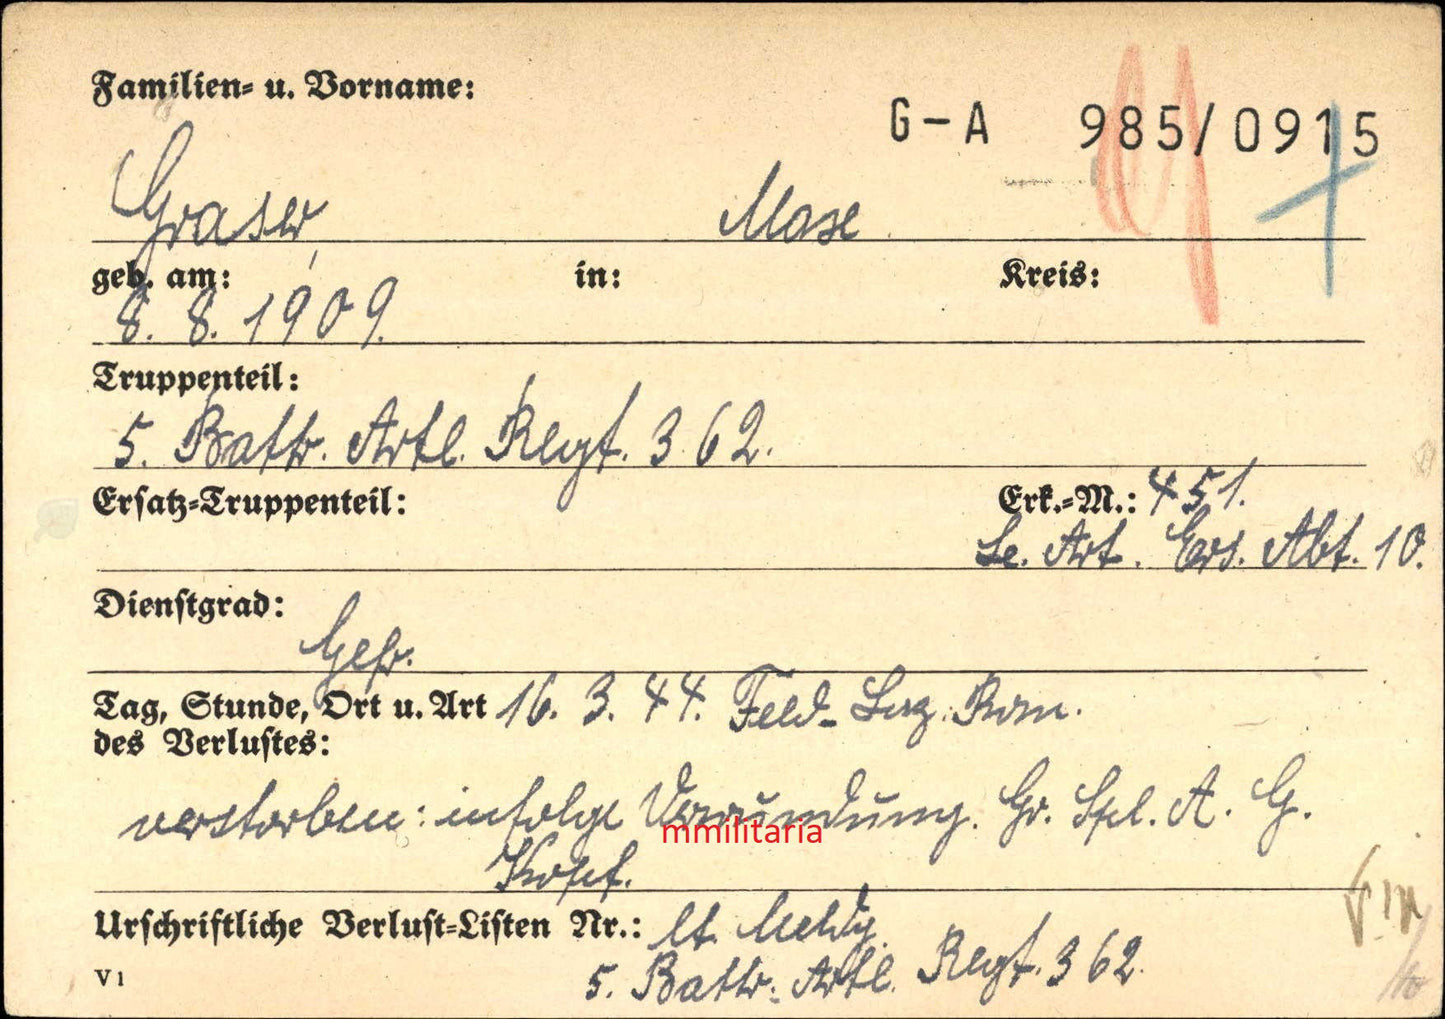 Familien- u. Vorname:
G-A 985/0915
Graser, Mose
geb. am: in: Kreis:
8. 8. 1909.
Truppenteil:
5. Battr. Artl. Regt. 362.
Ersatz-Truppenteil: Erk.-M.: 451.
Le. Art. Ers. Abt. 10.
Dienstgrad:
Gefr.
Tag, Stunde, Ort u. Art 16. 3. 44. Feld-Laz. Rom.
des Verlustes:
verstorben: infolge Verwundung. Gr. Spl. A. G.
mmilitaria
Kopf.
Urschriftliche Verlust-Listen Nr.: lt. Meldg.
V1 5. Battr. Artl. Regt. 362.